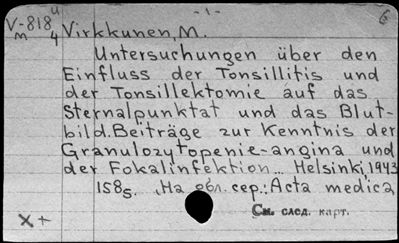 - 1 -
б
V-818 4
m 4
Virkkunen, M.
Untersuchungen über den
Einfluss der Tonsillitis und
der Tonsillektomie auf das
Sternalpunktat und das Blut-
bild. Beiträge zur Kenntnis der
Granulozytopenie-angina und
der Fokalinfektion... Helsinki, 1943
158s. На обл. сер.: Acta medica,
См. след. карт.
X+